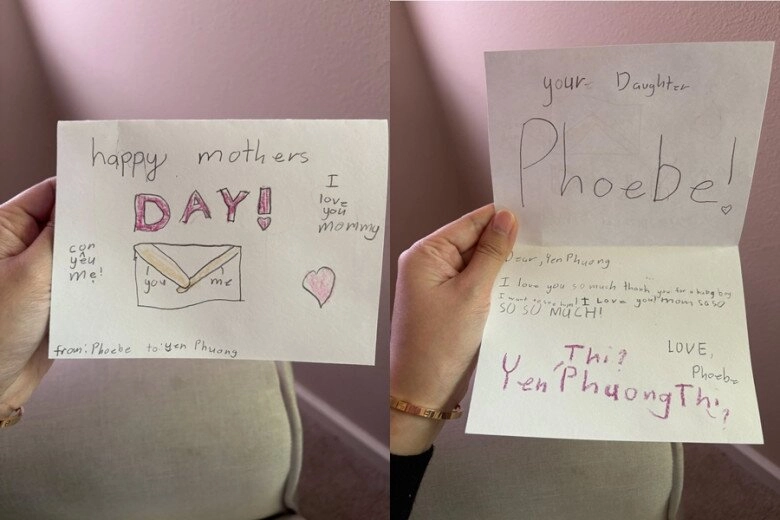 happy mothers
DAY!
I
love
you
mommy
con
yêu
mẹ!
you me
from: Phoebe to: yen Phuong
your Daughter
Phoebe!
Dear, Yen Phuong
I love you so much thank you for a baby boy
I want to see him! I Love you! mom so so
SO SO MUCH!
LOVE,
Phoebe
Thi?
Yen Phuong Thi?